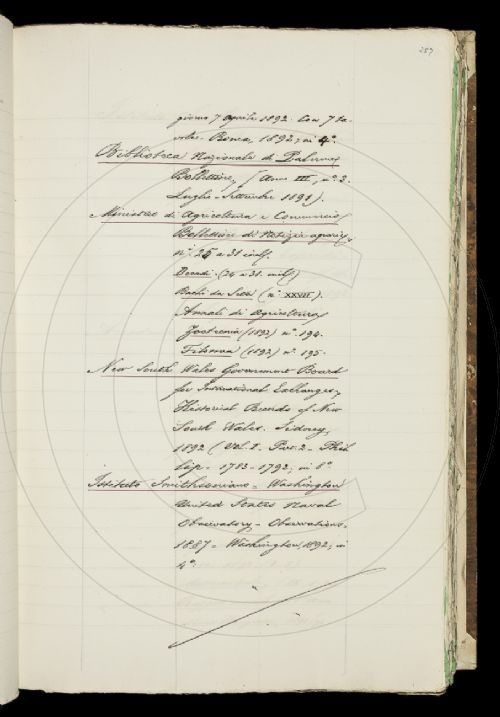 257
giorno 7 aprile 1892. Con 7 ta-
vole. Roma, 1892; in 4°.
Biblioteca Nazionale di Palermo
Bollettino, (Anno III, n° 3.
Luglio-Settembre 1891).
Ministero di Agricoltura e Commercio
Bollettino di Notizie agrarie,
n° 25 a 31 incl.
Decadi (24 a 31. incl.)
Bachi da Seta (n° XXVII).
Annali di Agricoltura
Zootecnia (1892) n° 194.
(1892) n° 195.
New South Wales Government Board
for International Exchanges,
Historical Records of New
South Wales. Sidney,
1892 (Vol. I. Part. 2 - Phil-
lip - 1783-1792; in 8°.
Istituto Smithsoniano = Washington
United States Naval
Observatory - Observations.
1887 - Washington, 1892; in
4°.